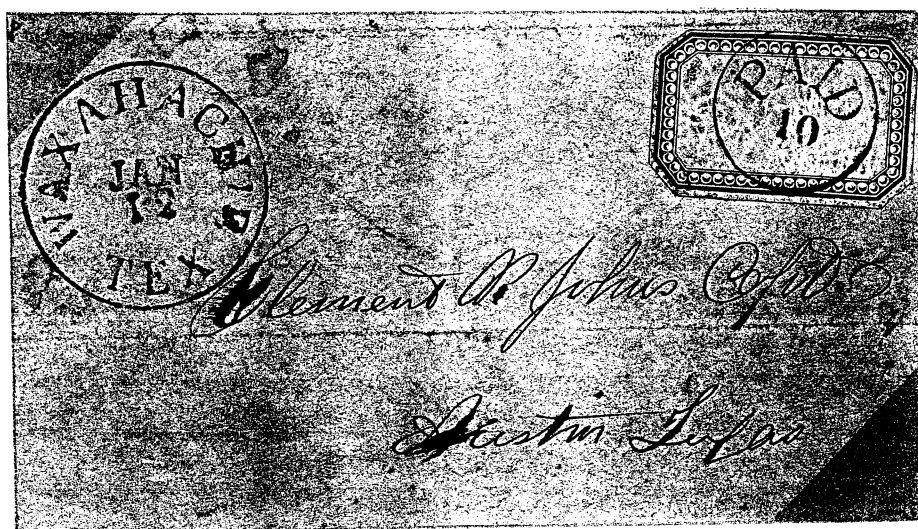 WAXAHACHIE
JAN
12
TEX
PAID
10
Clement R. Johns
Austin Texas